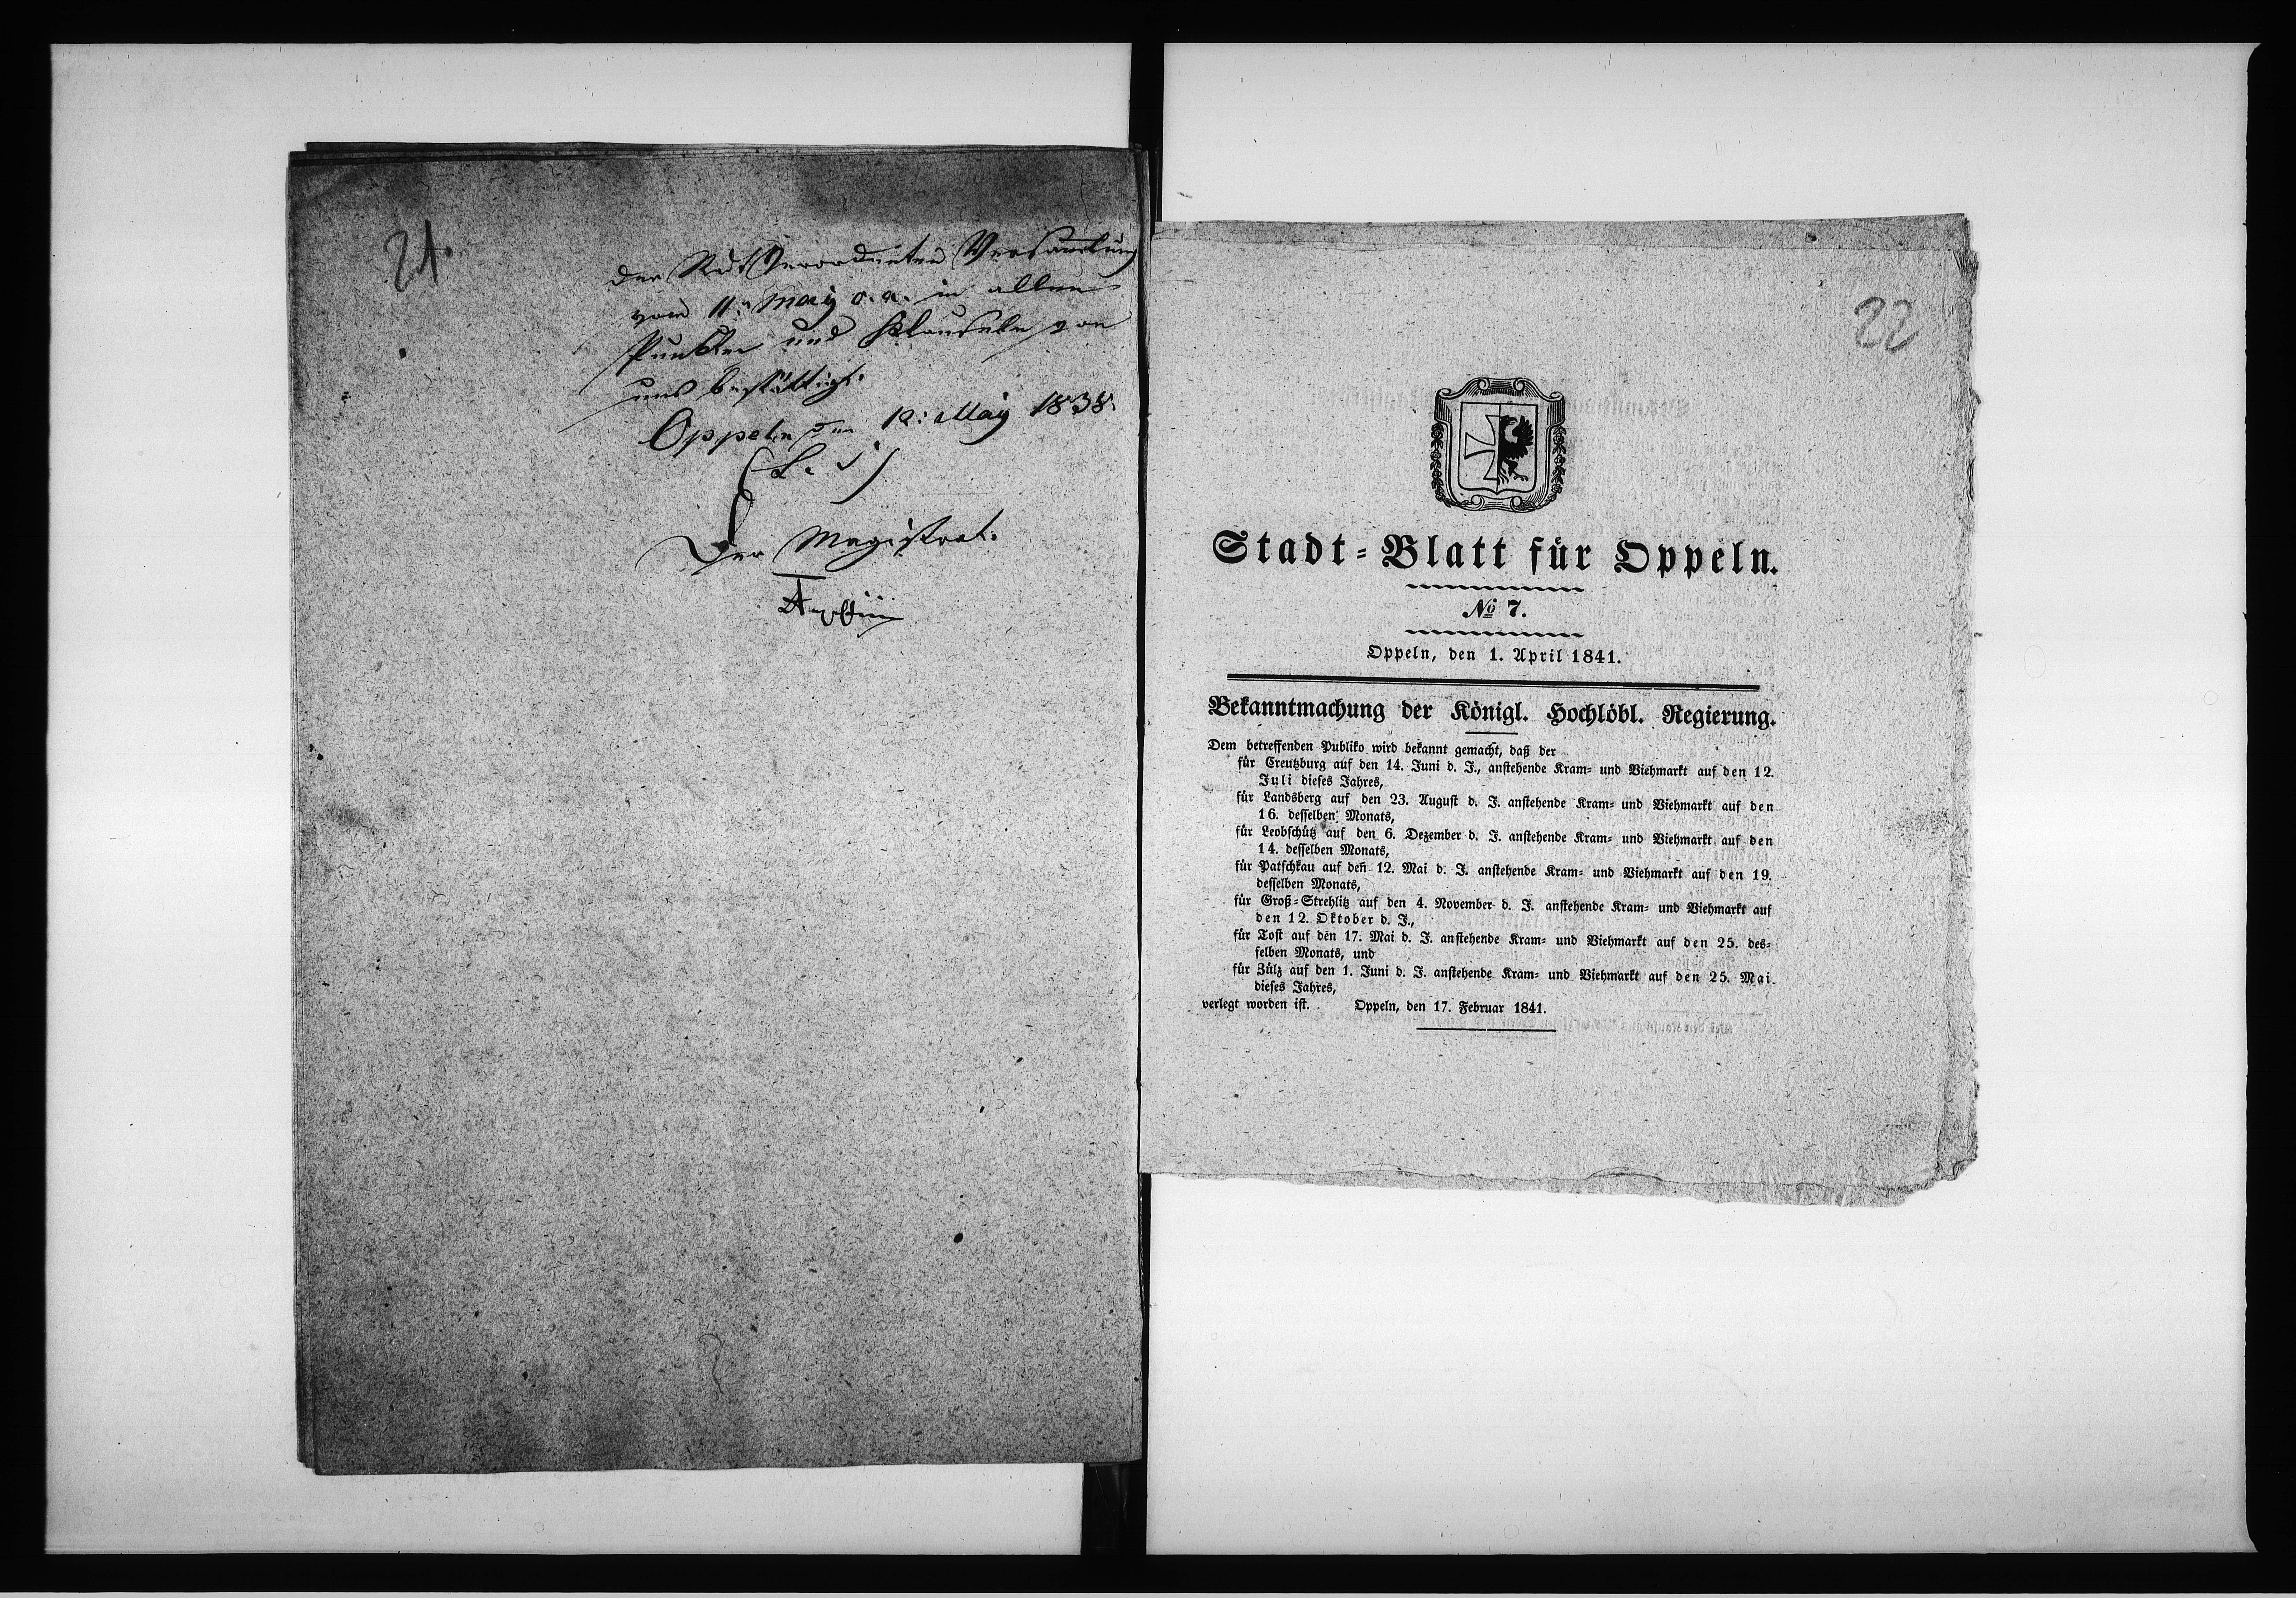 21.
der Stadt Verordneten Versamlung
vom 11: May d. a. in allen
Punkten und Klauseln von
uns bestättigt.
Oppeln den 12: May 1838.
(L. S.)
Der Magistrat.
22
Stadt=Blatt für Oppeln.
No 7.
Oppeln, den 1. April 1841.
Bekanntmachung der Königl. Hochlöbl. Regierung.
Dem betreffenden Publiko wird bekannt gemacht, daß der
für Creutzburg auf den 14. Juni d. J., anstehende Kram= und Viehmarkt auf den 12.
Juli dieses Jahres,
für Landsberg auf den 23. August d. J. anstehende Kram= und Viehmarkt auf den
16. desselben Monats,
für Leobschütz auf den 6. Dezember d. J. anstehende Kram= und Viehmarkt auf den
14. desselben Monats,
für Patschkau auf den 12. Mai d. J. anstehende Kram= und Viehmarkt auf den 19.
desselben Monats,
für Groß=Strehlitz auf den 4. November d. J. anstehende Kram= und Viehmarkt auf
den 12. Oktober d. J.,
für Tost auf den 17. Mai d. J. anstehende Kram= und Viehmarkt auf den 25. des=
selben Monats, und
für Zülz auf den 1. Juni d. J. anstehende Kram= und Viehmarkt auf den 25. Mai
dieses Jahres,
verlegt worden ist. Oppeln, den 17. Februar 1841.